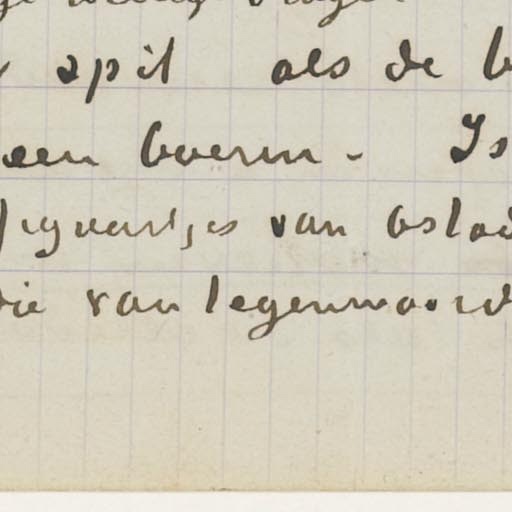 spit als de
een boerin - Is
figuurtjes van Ostad
die van tegenwoord